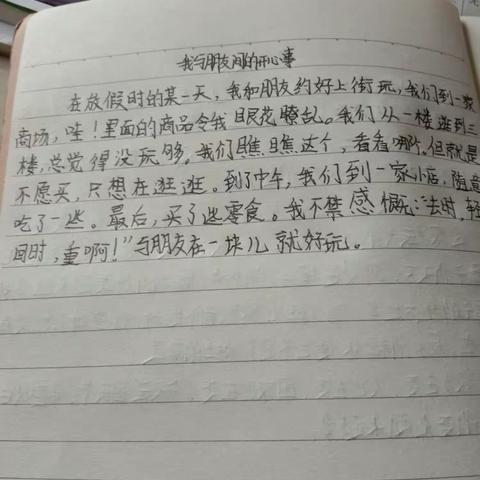 我与朋友间的开心事
在放假时的某一天，我和朋友约好上街玩，我们到一家
商场，哇！里面的商品令我眼花瞭乱。我们从一楼逛到三
楼，总觉得没玩够。我们瞧瞧这个，看看哪个，但就是
不愿买，只想在逛逛。到了中午，我们到一家小店，随意
吃了一些。最后，买了些零食。我不禁感慨：“去时，轻
回时，重啊！”与朋友在一块儿就好玩。